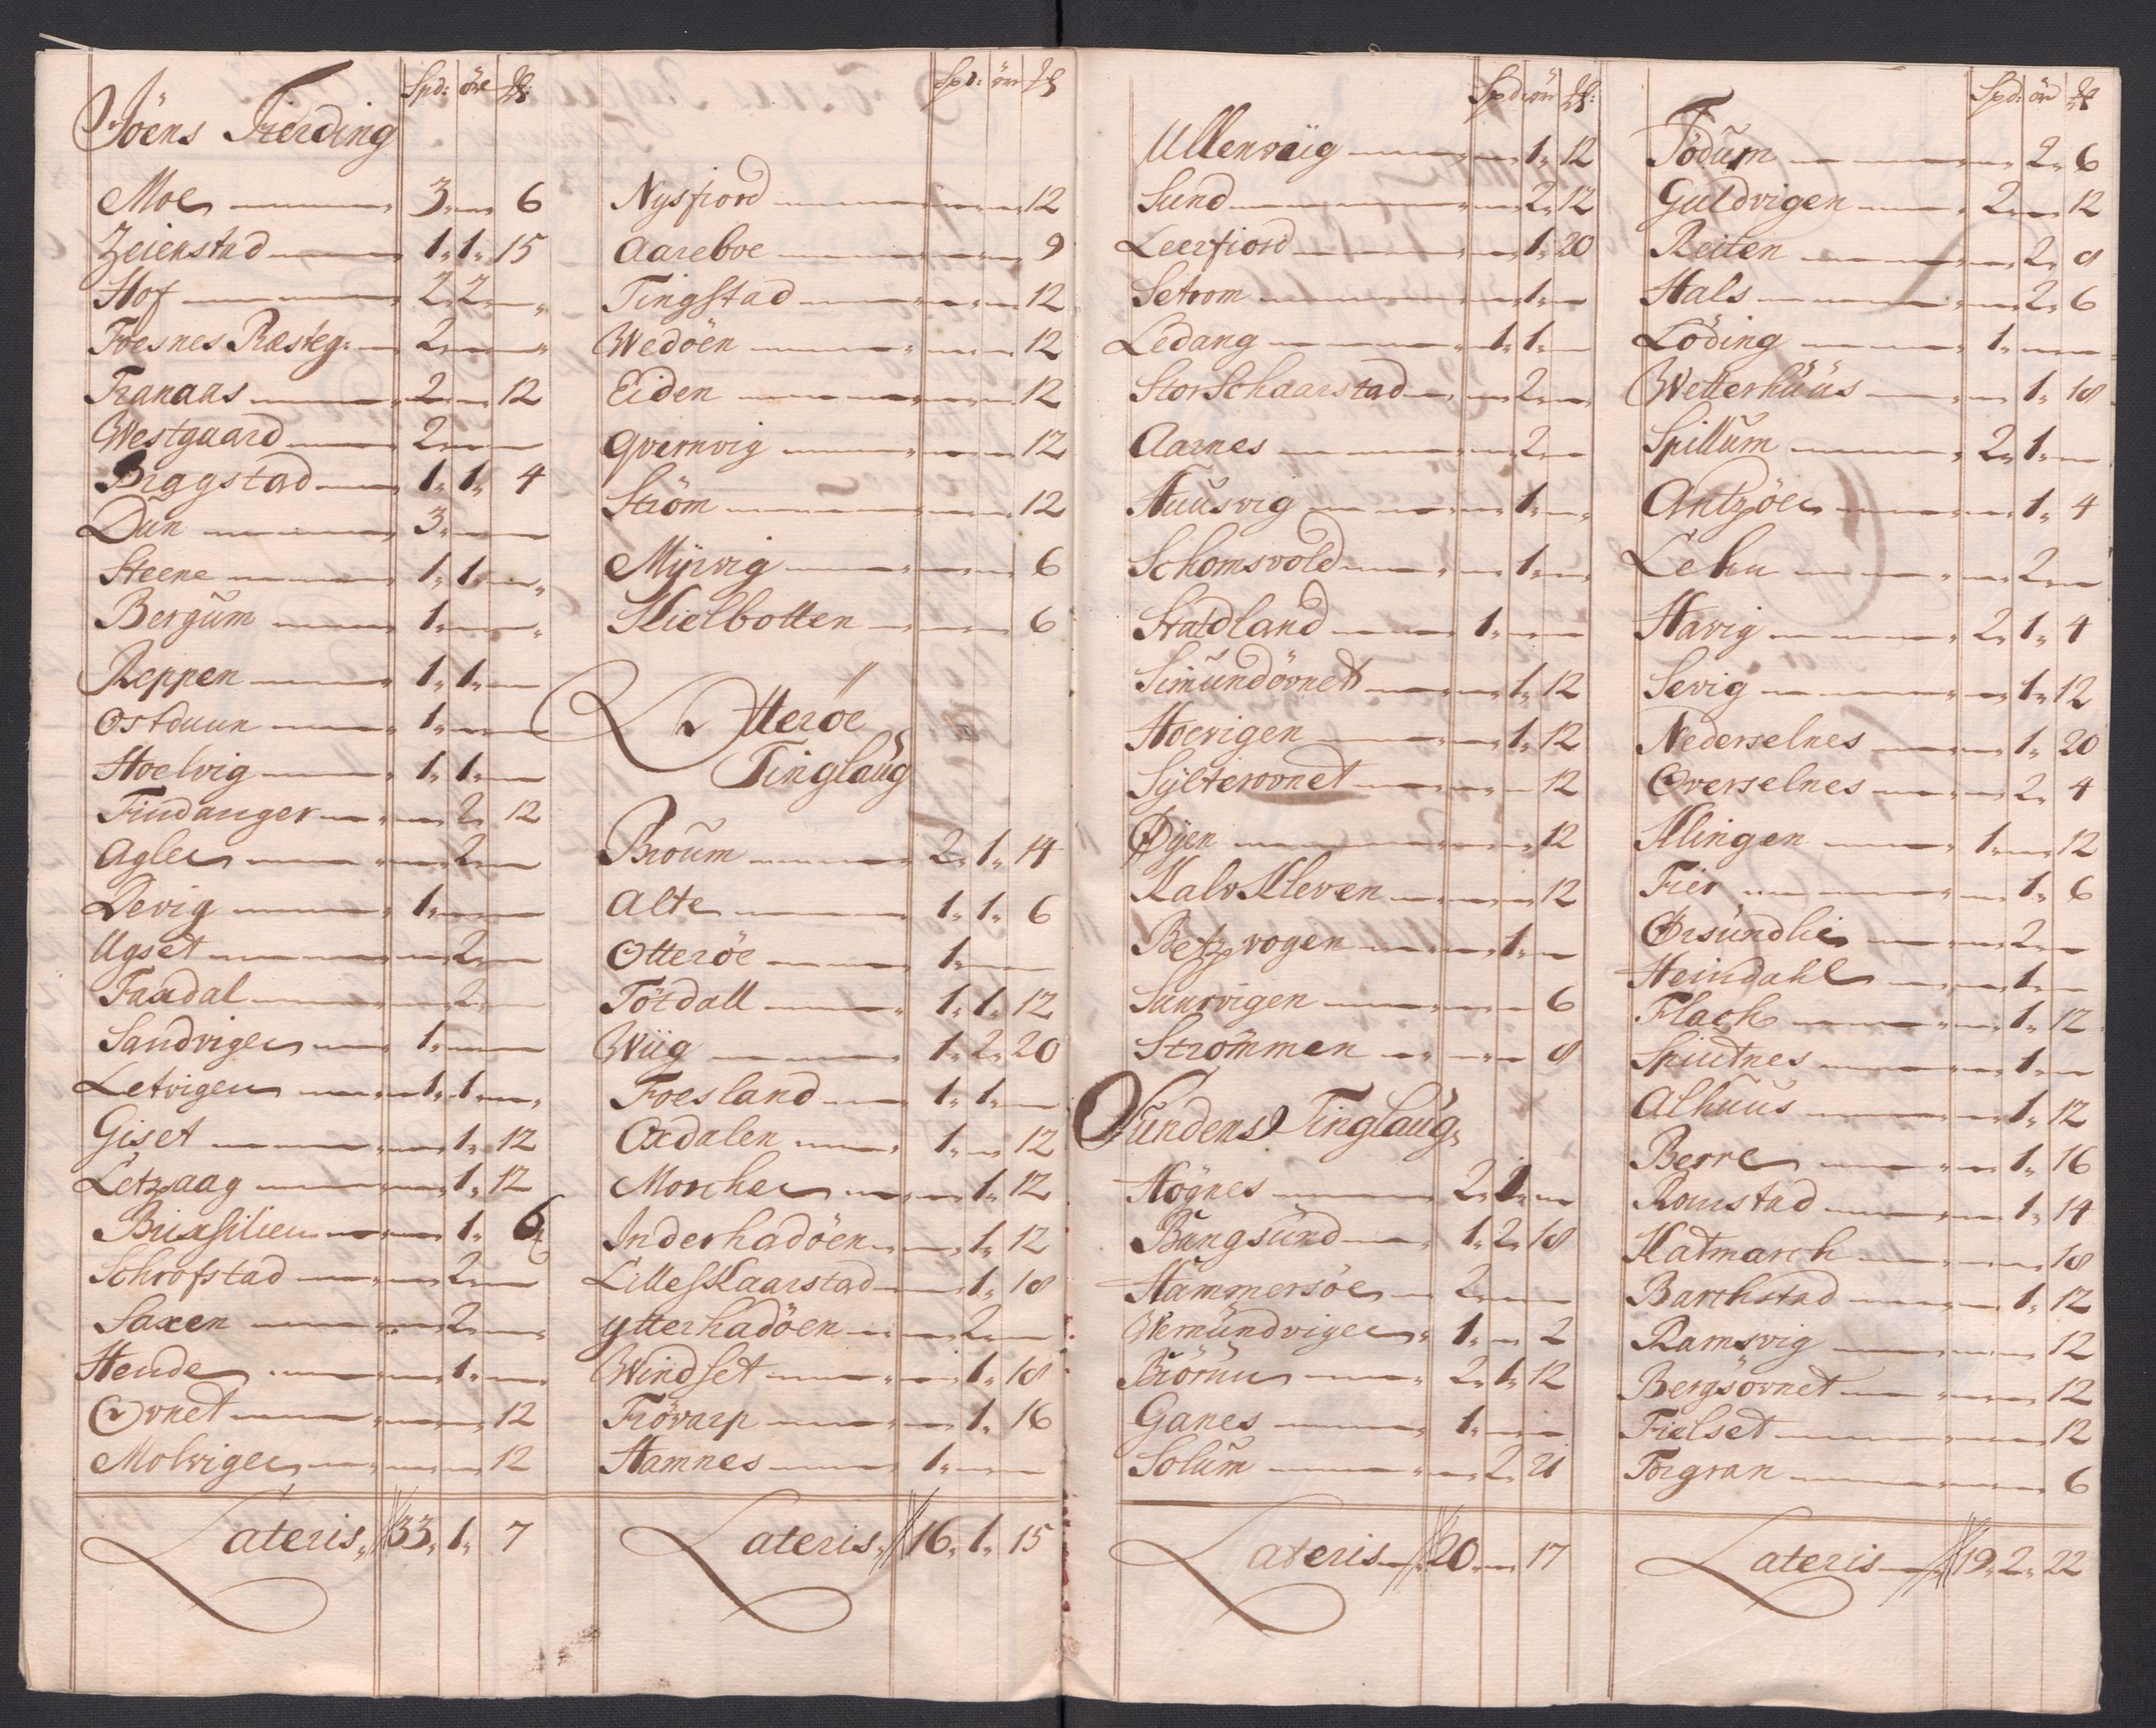 Spd: öre ß:
Jöens Fierding
Moe 3 " 6
Zeienstad 1 " 1 " 15
Hof 2 " 2 "
Foesnes Præsteg: 2 "
Tranaas 2 " 12
Westgaard 2 "
Biggstad 1 " 1 " 4
Dun 3 "
Steene 1 " 1 "
Bergum 1 "
Reppen 1 " 1 "
Ostduun 1 "
Hoelvig 1 " 1 "
Findanger 2 " 12
Aglen 2 "
Devig 1 "
Ugset 2 "
Faxdal 2 "
Sandvigen 1 "
Letvigen 1 " 1 "
Giset 1 " 12
Letzaag 1 " 12
Buxsilien 1 " 6
Schrofstad 2 "
Saxen 2 "
Hende 1 "
Ovnet 12
Molvigen 12
Lateris 33 " 1 " 7
Spd: öre ß
Nysfiord 12
Aareboe 9
Tingstad 12
Wedöen 12
Eiden 12
Qvernvig 12
Ström 12
Myrvig 6
Kielbotten 6
Otteröe
Tinglaug
Broum 2 " 1 " 14
Alte 1 " 1 " 6
Otteröe 1 "
Tötdall 1 " 1 " 12
Wiig 1 " 2 " 20
Foesland 1 " 1 "
Oxdalen 1 " 12
Morchen 1 " 12
Inderhadöen 1 " 12
LilleSkaarstad 1 " 18
ytterhadöen 2 "
Windset 1 " 18
Frövarp 1 " 16
Hamnes 1 "
Lateris 16 " 1 " 15
Spd: öre ß:
Ullenvüig 1 " 12
Sund 2 " 12
Leerfiord 1 " 20
Setrom 1 "
Ledang 1 " 1 "
StorSchaarstad 2 "
Aarnes 2 "
Huusvig 1 "
Schomsvold 1 "
Statdland 1 "
Simundövnet 1 " 12
Hoevigen 1 " 12
Sylterovnet 12
Öyen 12
KalvKleven 12
Betzvogen 1 "
Saurvigen 6
Strömmen 8
Sundens Tinglaug
Högnes 2 " 1 "
Bangsund 1 " 2 " 18
Hammersöe 2 "
Wemundvigen 1 " 2
Bröruu 2 " 1 " 12
Ganes 1 "
Solum 2 " 21
Lateris 20 " 17
Spd: öre ß
Födum 2 " 6
Guldvigen 2 " 12
Reiten 2 " 8
Hals 2 " 6
Löding 1 "
Wetterhuus 1 " 18
Spillum 2 " 1 "
Antzöen 1 " 4
Lehn 2 "
Havig 2 " 1 " 4
Sevig 1 " 12
Nederselnes 1 " 20
Overselnes 2 " 4
Klingen 1 " 12
Fier 1 " 6
Örsundlie 2 "
Heindahl 1 "
Flach 1 " 12
Spiutnes 1 "
Alhuus 1 " 12
Berre 1 " 16
Romstad 1 " 14
Katmarch 18
Barchstad 1 " 12
Ramsvig 12
Bergsövnet 12
Fielset 12
Torgran 6
Lateris 19 " 2 " 22